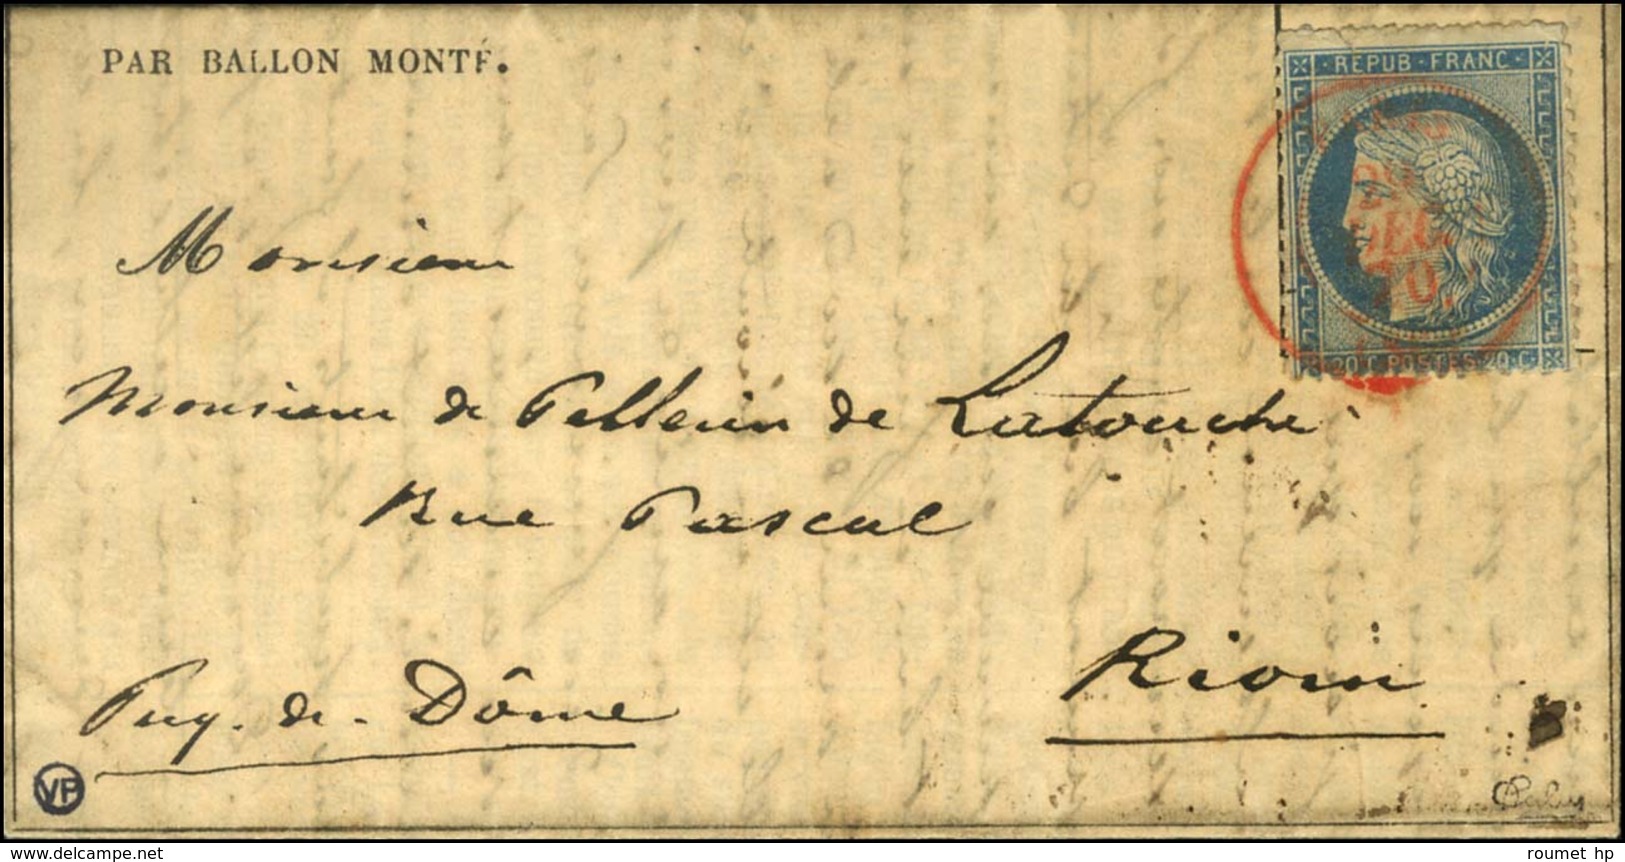 PAR BALLON MONTÉ.
REPUB·FRANC·
DEC.
70.
20·C·POSTES·20·C·
Monsieur
Monsieur de Pellerin de Latouche
Rue Pascal
Riom
Puy-de-Dôme
VP
www.delcampe.net
roumet hp